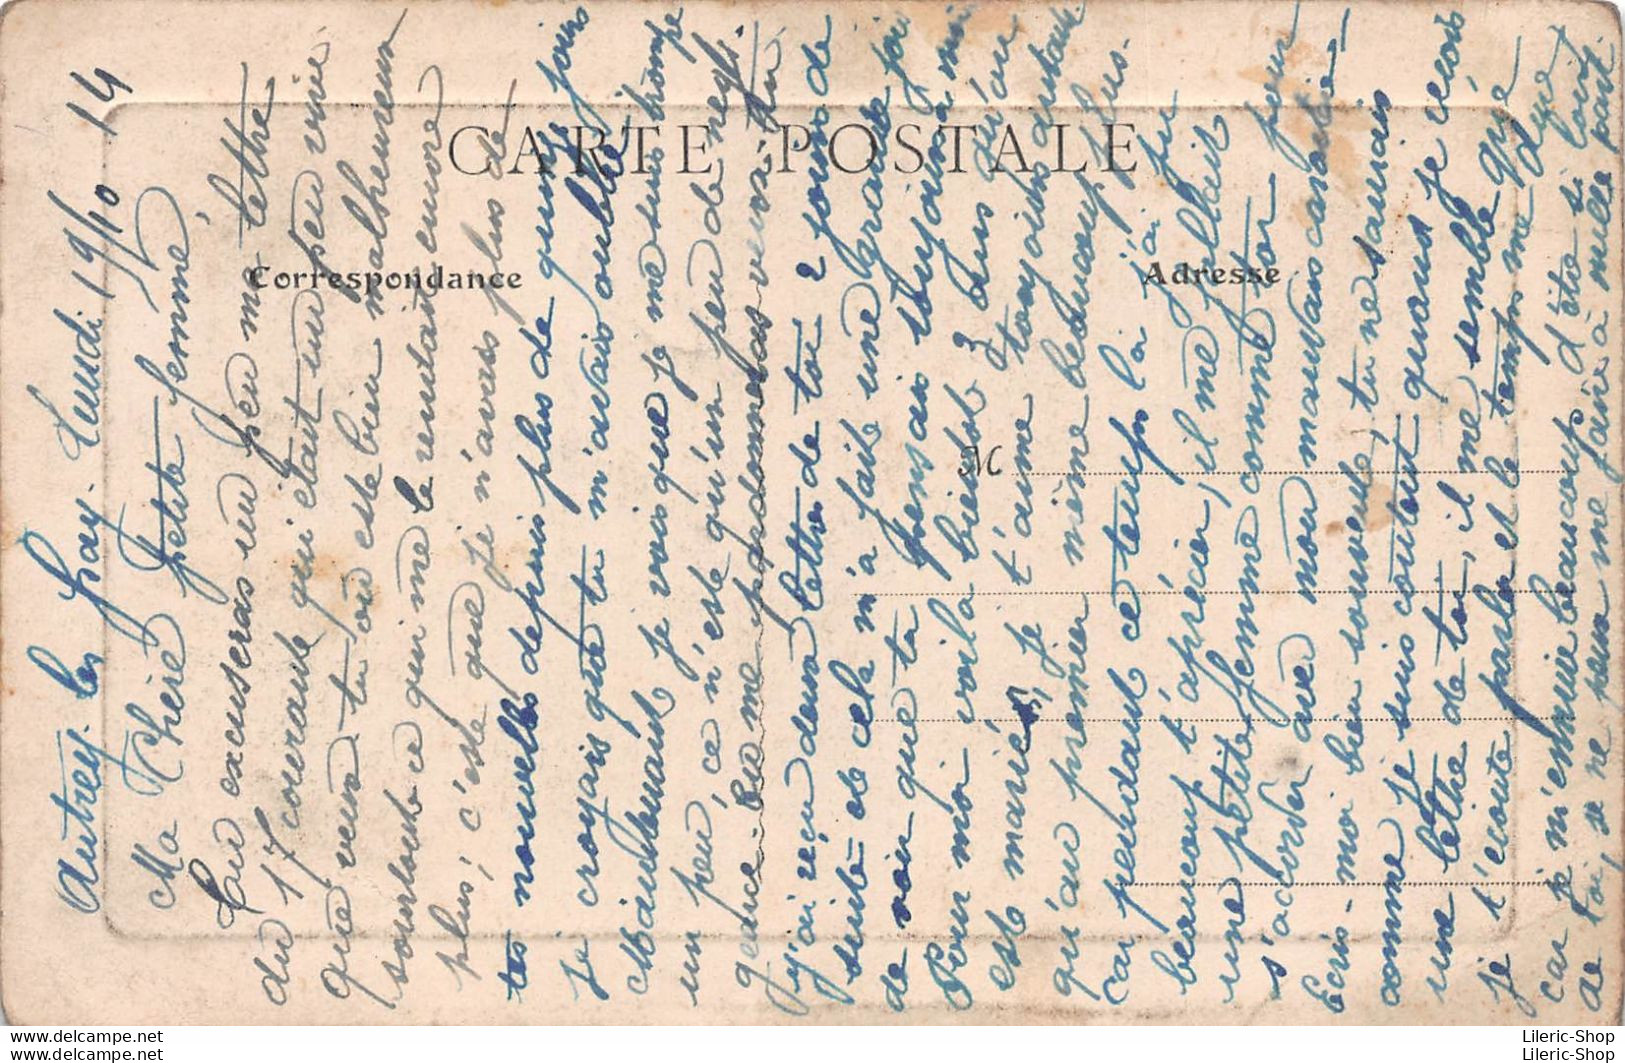 Autrey les Gray. Lundi 19/10 14
Ma Chère petite femme,
Tu excuseras un peu ma lettre
du 17 courant qui était un peu vive
que veux-tu on est bien malheureux
surtout ce qui me le rendait encore
plus, c'est que je n'avais plus de
tes nouvelles depuis plus de quinze jours
je croyais que tu m'avais oublié
Maintenant je vois que je me suis trompé
un peu, ce n'est qu'un peu de négli-
gence. Tu me pardonneras veux-tu
j'ai reçu deux lettres de toi 2 jours de
suite et cela m'a fait une grande joie
de voir que tu pensais toujours à moi
Pour moi voila bientot 3 ans qu'on
est mariés, je t'aime toujours autant
qu'au premier même beaucoup plus.
car pendant ce temps là j'ai pu
beaucoup t'aprécier, il me fallait
une petite femme comme toi pour
s'accorder avec mon mauvais caractère
Ecris-moi bien souvent, tu ne saurais
comme je suis content quand je reçois
une lettre de toi, il me semble que
je t'écoute parler et le temps me dure
car je m'ennuie beaucoup d'être si loin
de toi, je ne peux me faire à nulle part.
CARTE POSTALE
Correspondance
Adresse
M
Lileric-Shop
Lileric-Shop
www.delcampe.net
www.delcampe.net